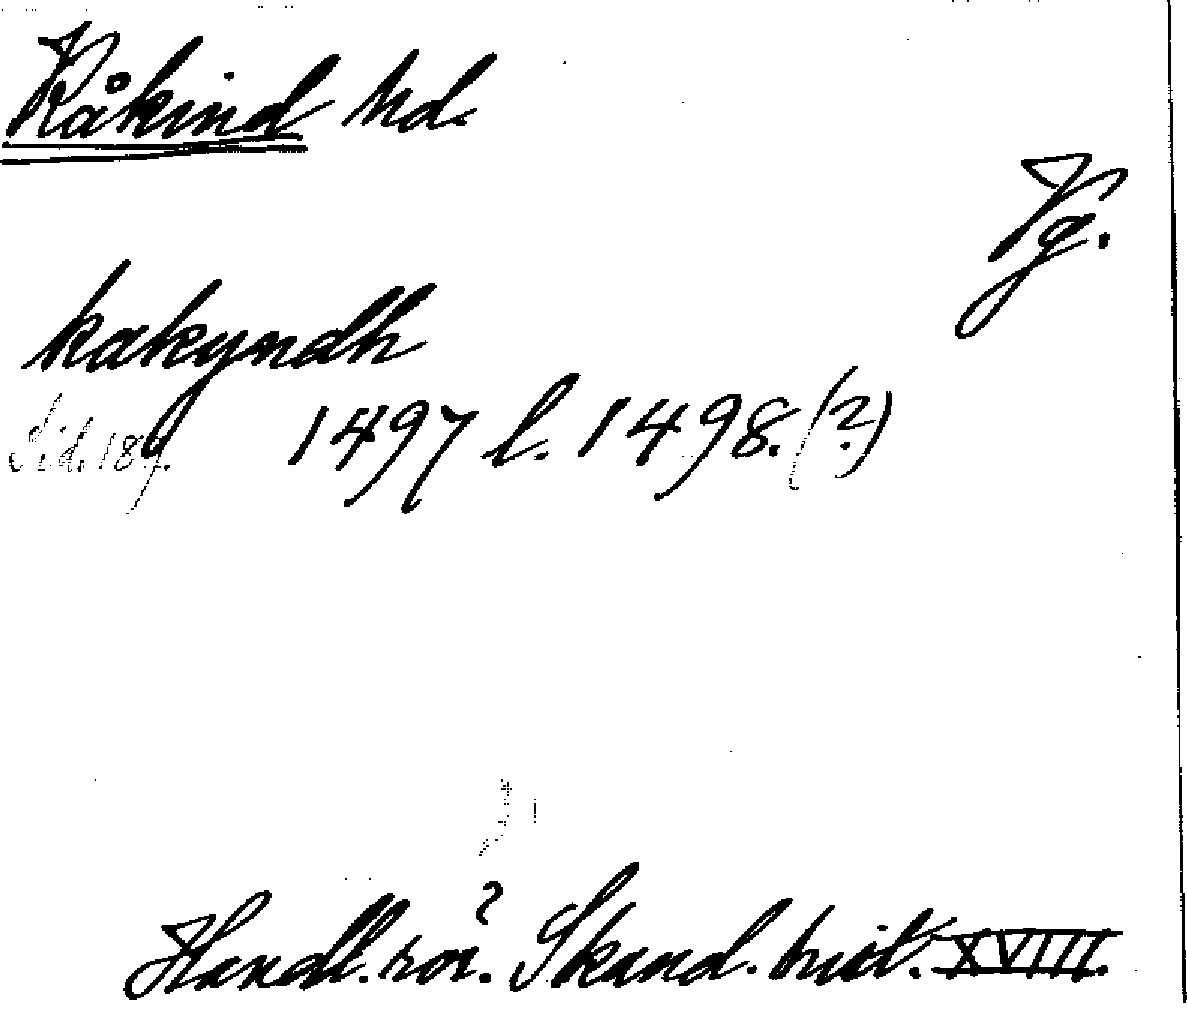 Kåkind hd.
Vg.
kakyndh
Sid. 189. 1497 l. 1498. (?)
Handl. rör. Skand. hist. XVIII.